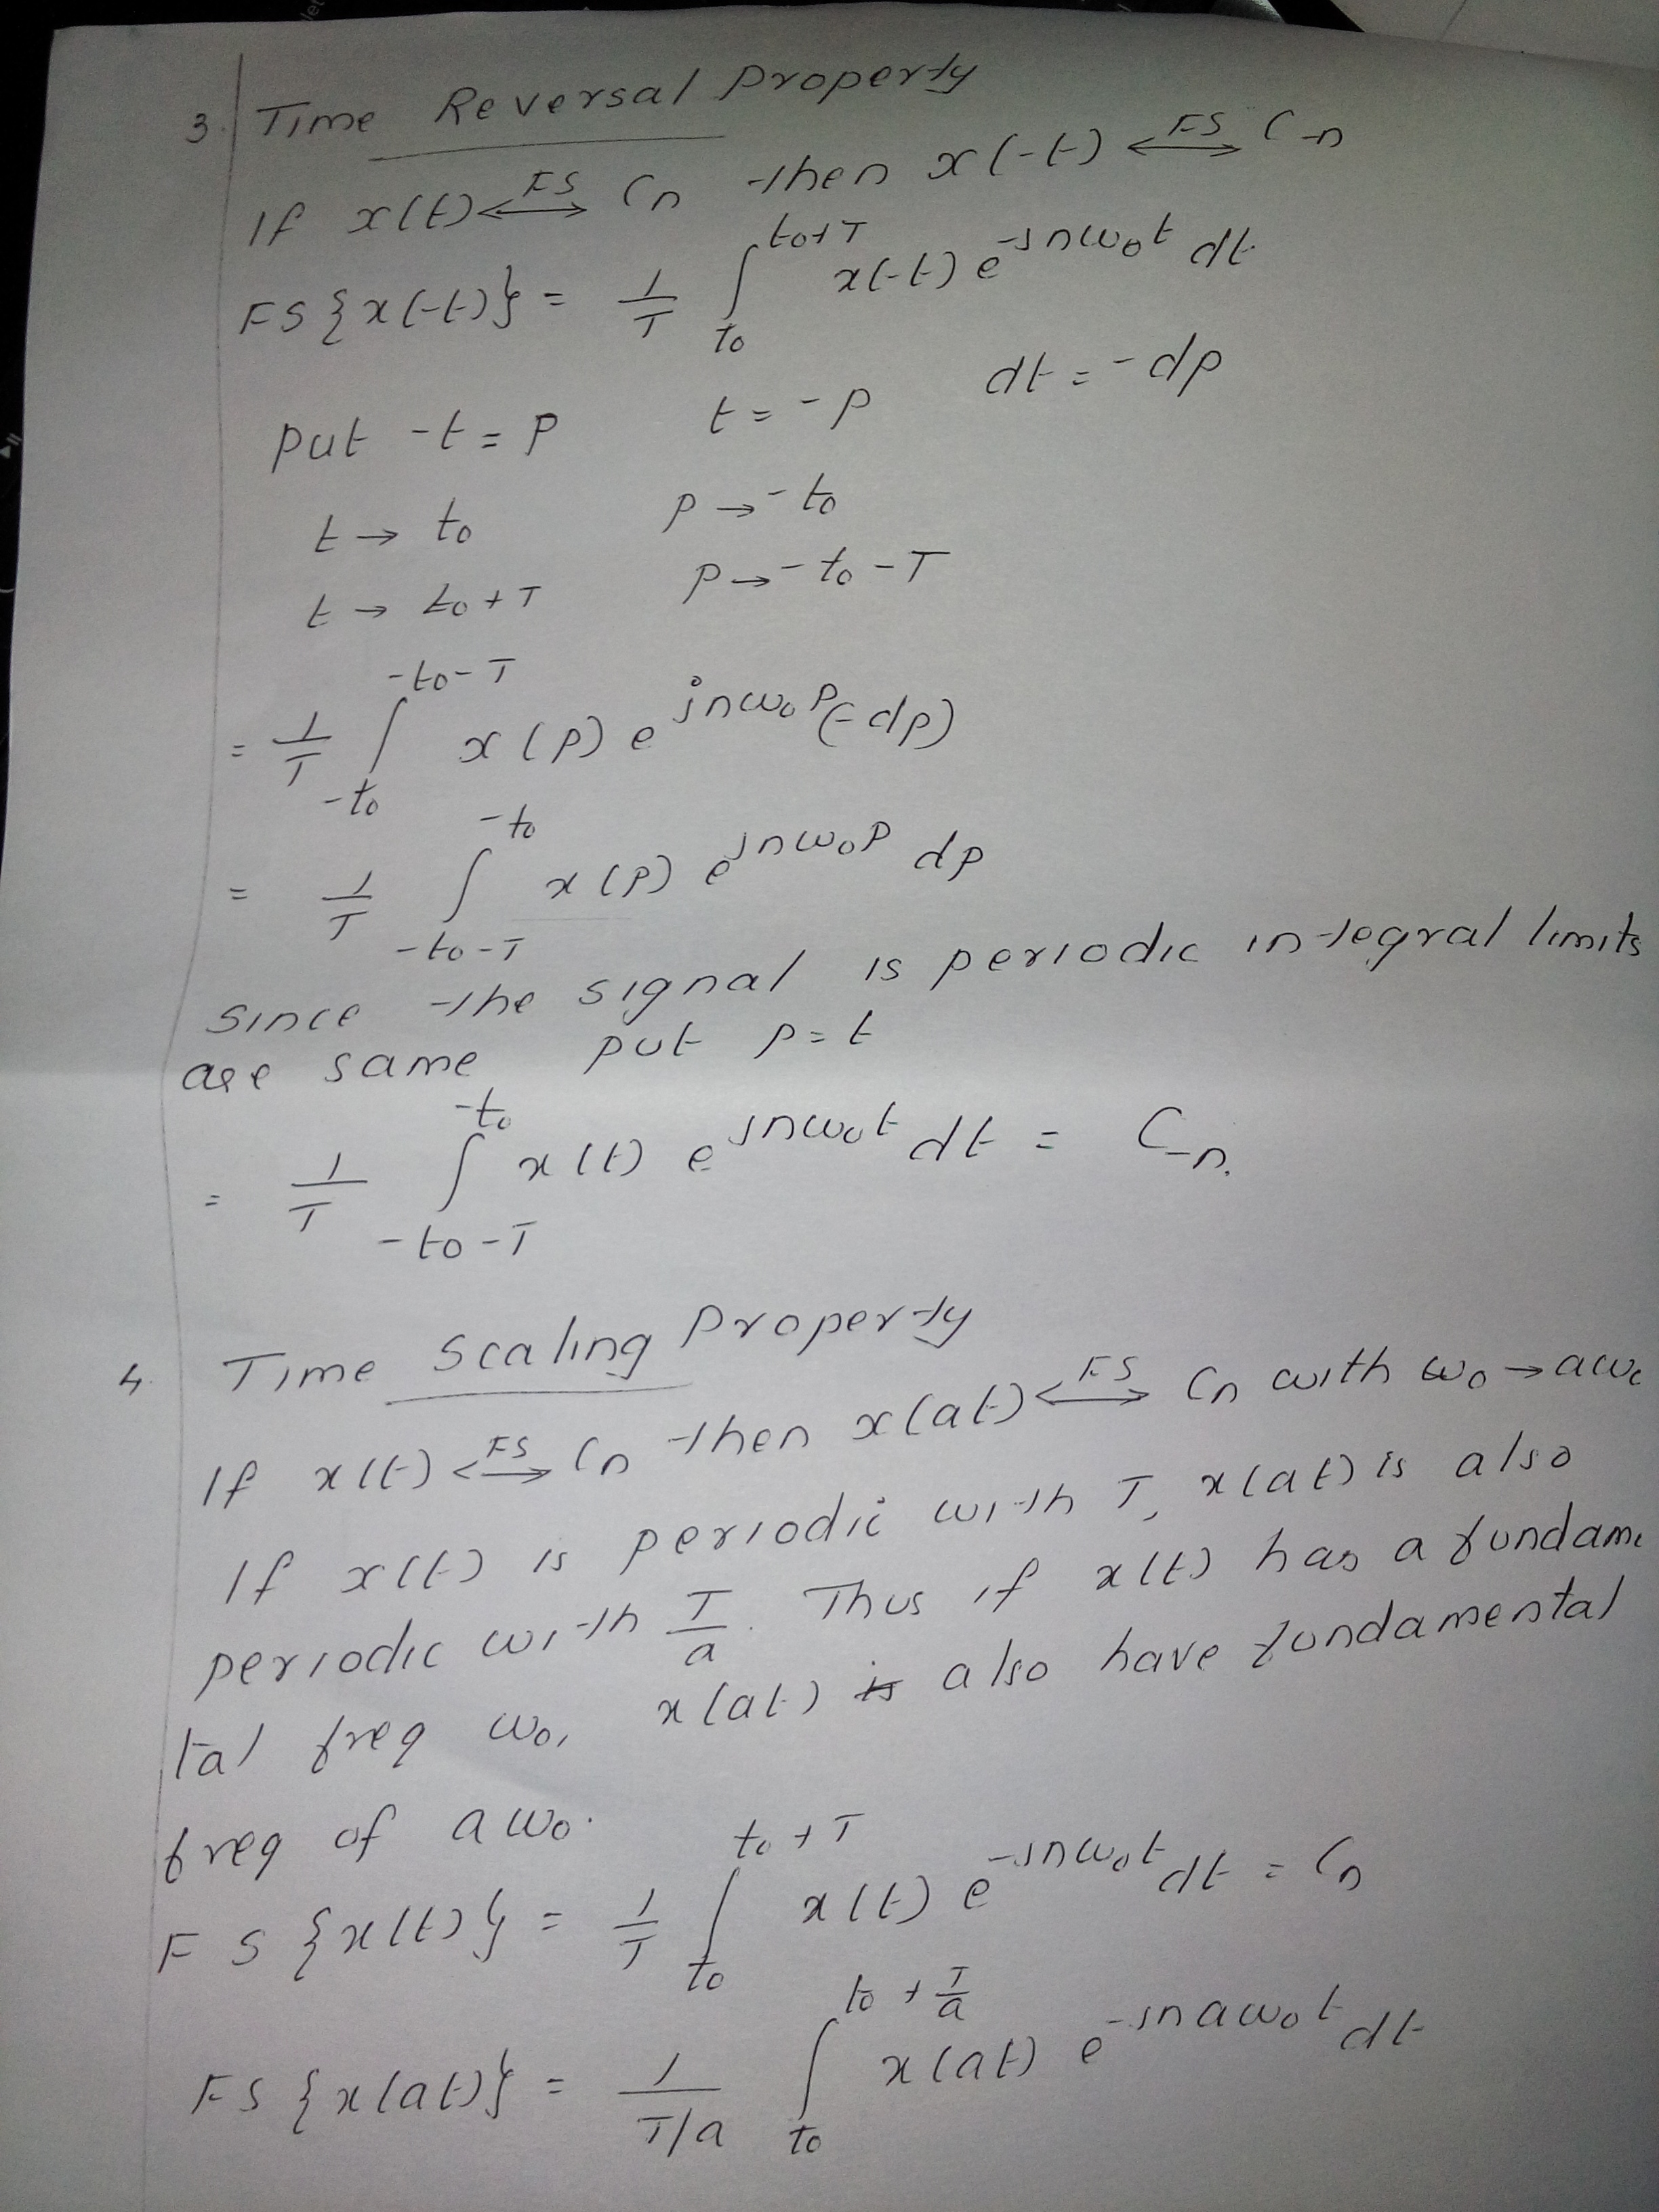 3. Time Reversal Property
If x(t) <--FS--> Cn then x(-t) <--FS--> C-n
FS{x(-t)} = 1/T ∫_{t0}^{t0+T} x(-t) e^{-jnω0t} dt
put -t = p t = -p dt = -dp
t → t0 p → -t0
t → t0+T p → -t0-T
= 1/T ∫_{-t0}^{-t0-T} x(p) e^{jnω0p} (-dp)
= 1/T ∫_{-t0-T}^{-t0} x(p) e^{jnω0p} dp
since the signal is periodic integral limits
are same put p = t
= 1/T ∫_{-t0-T}^{-t0} x(t) e^{jnω0t} dt = C-n.
4. Time Scaling Property
If x(t) <--FS--> Cn then x(at) <--FS--> Cn with ω0 → aω0
If x(t) is periodic with T, x(at) is also
periodic with T/a. Thus if x(t) has a fundam
tal freq ω0, x(at) is also have fundamental
freq of aω0.
FS{x(t)} = 1/T ∫_{t0}^{t0+T} x(t) e^{-jnω0t} dt = Cn
FS{x(at)} = 1/(T/a) ∫_{t0}^{t0+T/a} x(at) e^{-jnaω0t} dt